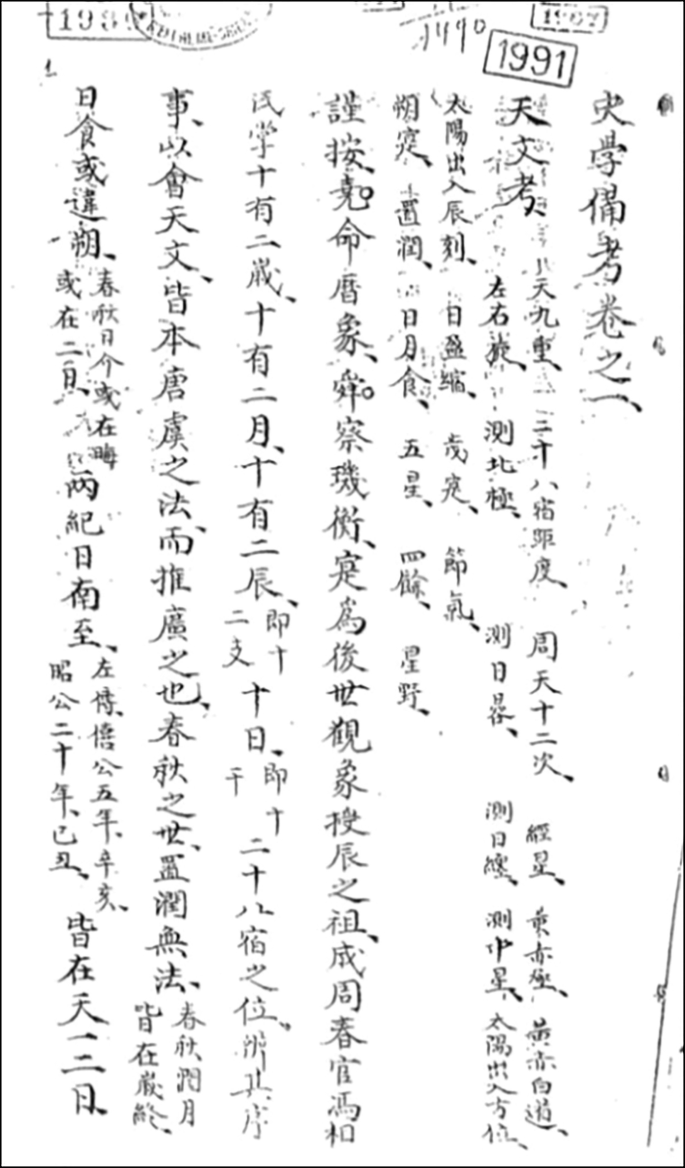 1990
1991
1
史學備考卷之一
天文考 天九重 二十八宿距度 周天十二次 經星 黃赤極 黃赤白道
左右旋 測北極 測日晷 測日纏 測中星 太陽出入方位
太陽出入辰刻 日盈縮 歲寔 節氣
朔寔 置潤 日月食 五星 四餘 星野
謹按堯命曆象舜察璣衡寔爲後世觀象授辰之祖成周春官馮相
氏掌十有二歲十有二月十有二辰即十二支十日即十干二十八宿之位辨其序
事以會天文皆本唐虞之法而推廣之也春秋之世置潤無法春秋潤月皆在歲終
日食或違朔春秋日介或在晦或在二日兩紀日南至左傳僖公五年辛亥昭公二十年己丑皆在天一二日